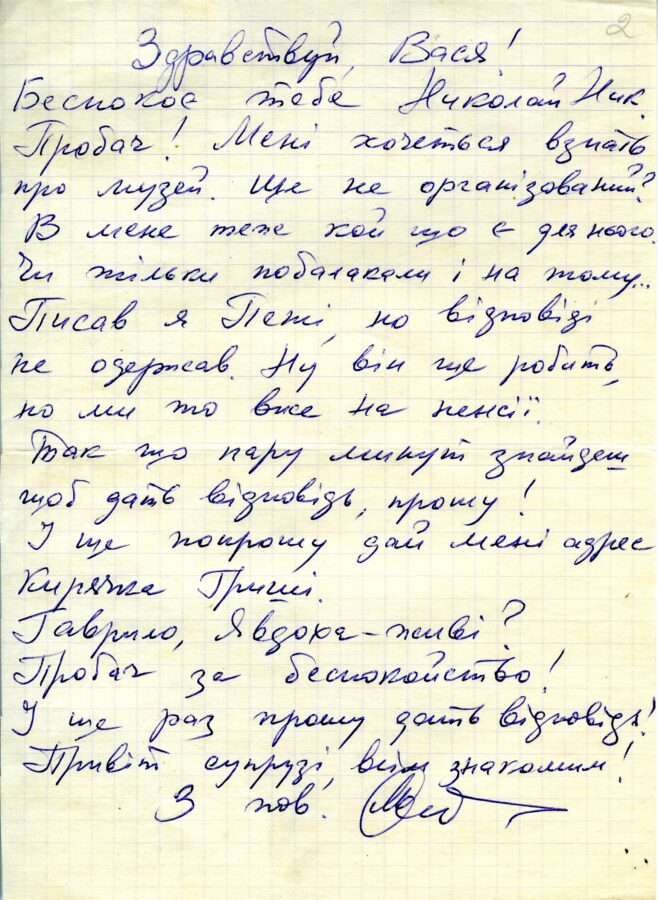 2
Здравствуй, Вася!
Беспокоє тебе Николай Ник.
Пробач! Мені хочеться взнать
про музей. Ще не організований?
В мене теж кой що є для нього.
Чи тільки побалакали і на тому...
Писав я Петі, но відповіді
не одержав. Ну він ще робить,
но ми то вже на пенсії.
Так що пару минут знайдеш
щоб дать відповідь, прошу!
І ще попрошу дай мені адрес
Кирячка Гриші.
Гаврило, Явдоха - живі?
Пробач за беспокойство!
І ще раз прошу дать відповідь!
Привіт супрузі, всім знакомим!
З пов.